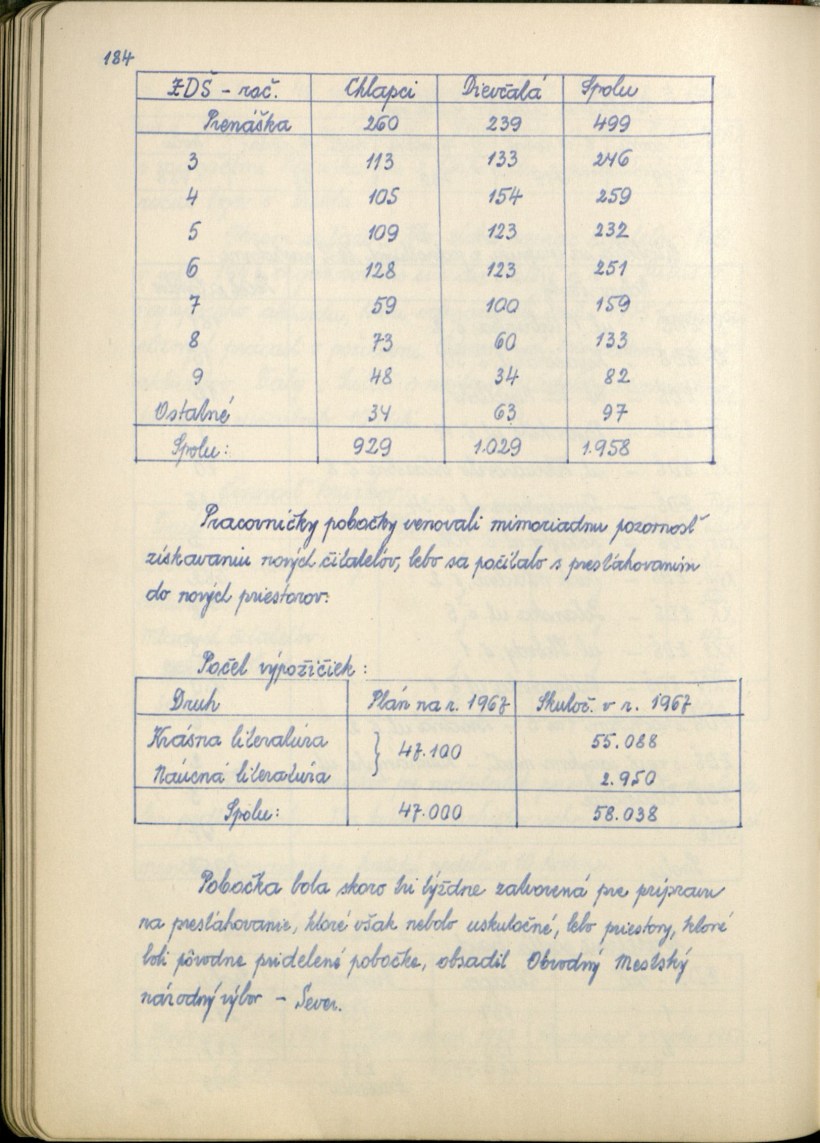 184
ZDŠ - roč. Chlapci Dievčatá Spolu
Prenáška 260 239 499
3 113 133 246
4 105 154 259
5 109 123 232
6 128 123 251
7 59 100 159
8 73 60 133
9 48 34 82
Ostatné 34 63 97
Spolu: 929 1.029 1.958
Pracovníčky pobočky venovali mimoriadnu pozornosť
získavaniu nových čitateľov, lebo sa počítalo s presťahovaním
do nových priestorov.
Počet výpožičiek:
Druh Plán na r. 1967 Skutoč. v r. 1967
Krásna literatúra } 47.100 55.088
Náučná literatúra 2.950
Spolu: 47.000 58.038
Pobočka bola skoro tri týždne zatvorená pre prípravu
na presťahovanie, ktoré však nebolo uskutočné, lebo priestory, ktoré
boli pôvodne pridelené pobočke, obsadil Obvodný Mestský
národný výbor - Sever.